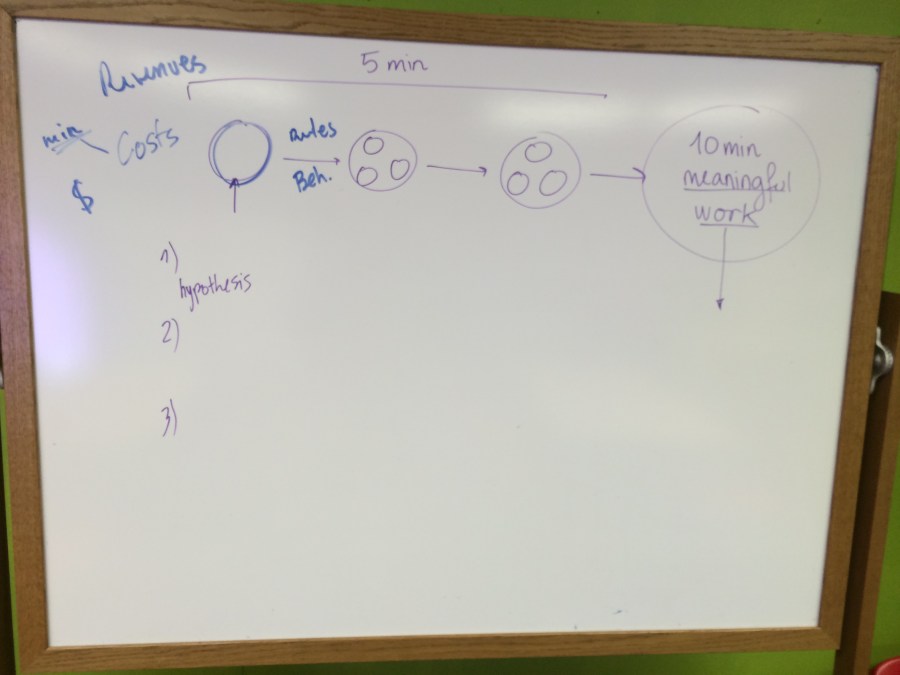 Revenues
5 min
min
Costs
$
rules
Beh.
10 min
meaningful
work
1)
hypothesis
2)
3)